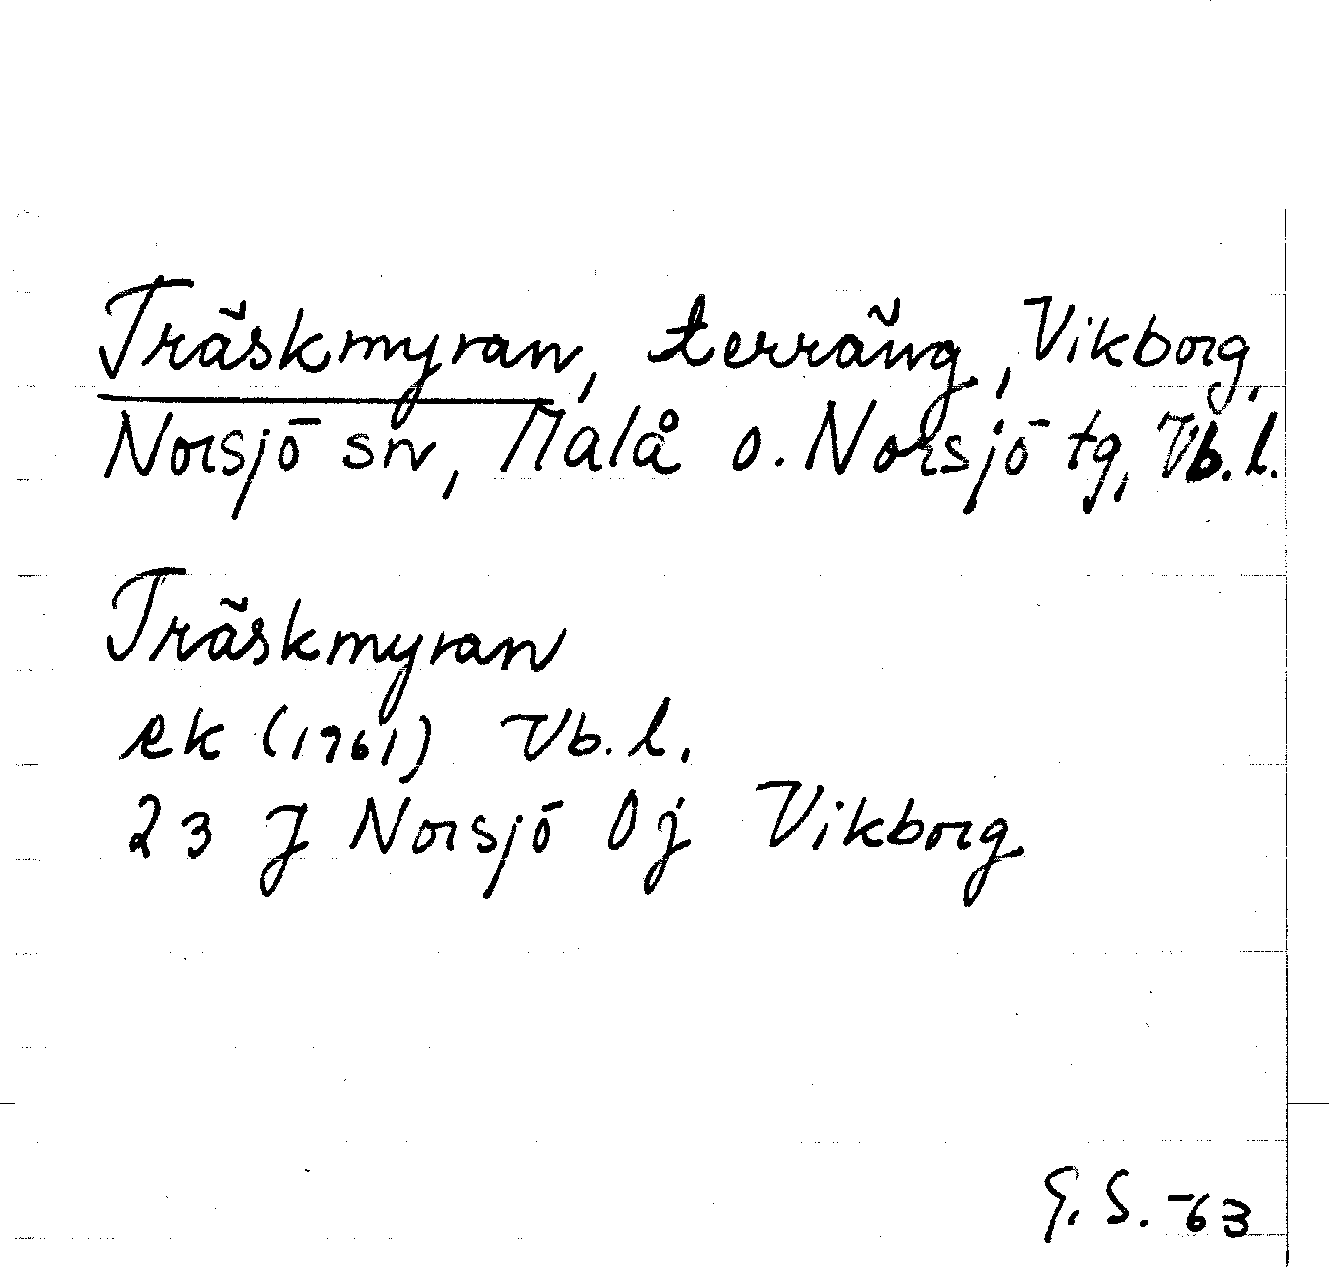 Träskmyran, terräng, Vikborg,
Norsjö sn, Malå o. Norsjö tg, Vb. l.
Träskmyran
ek (1961) Vb. l.
23 J Norsjö 0j Vikborg
G. S. -63